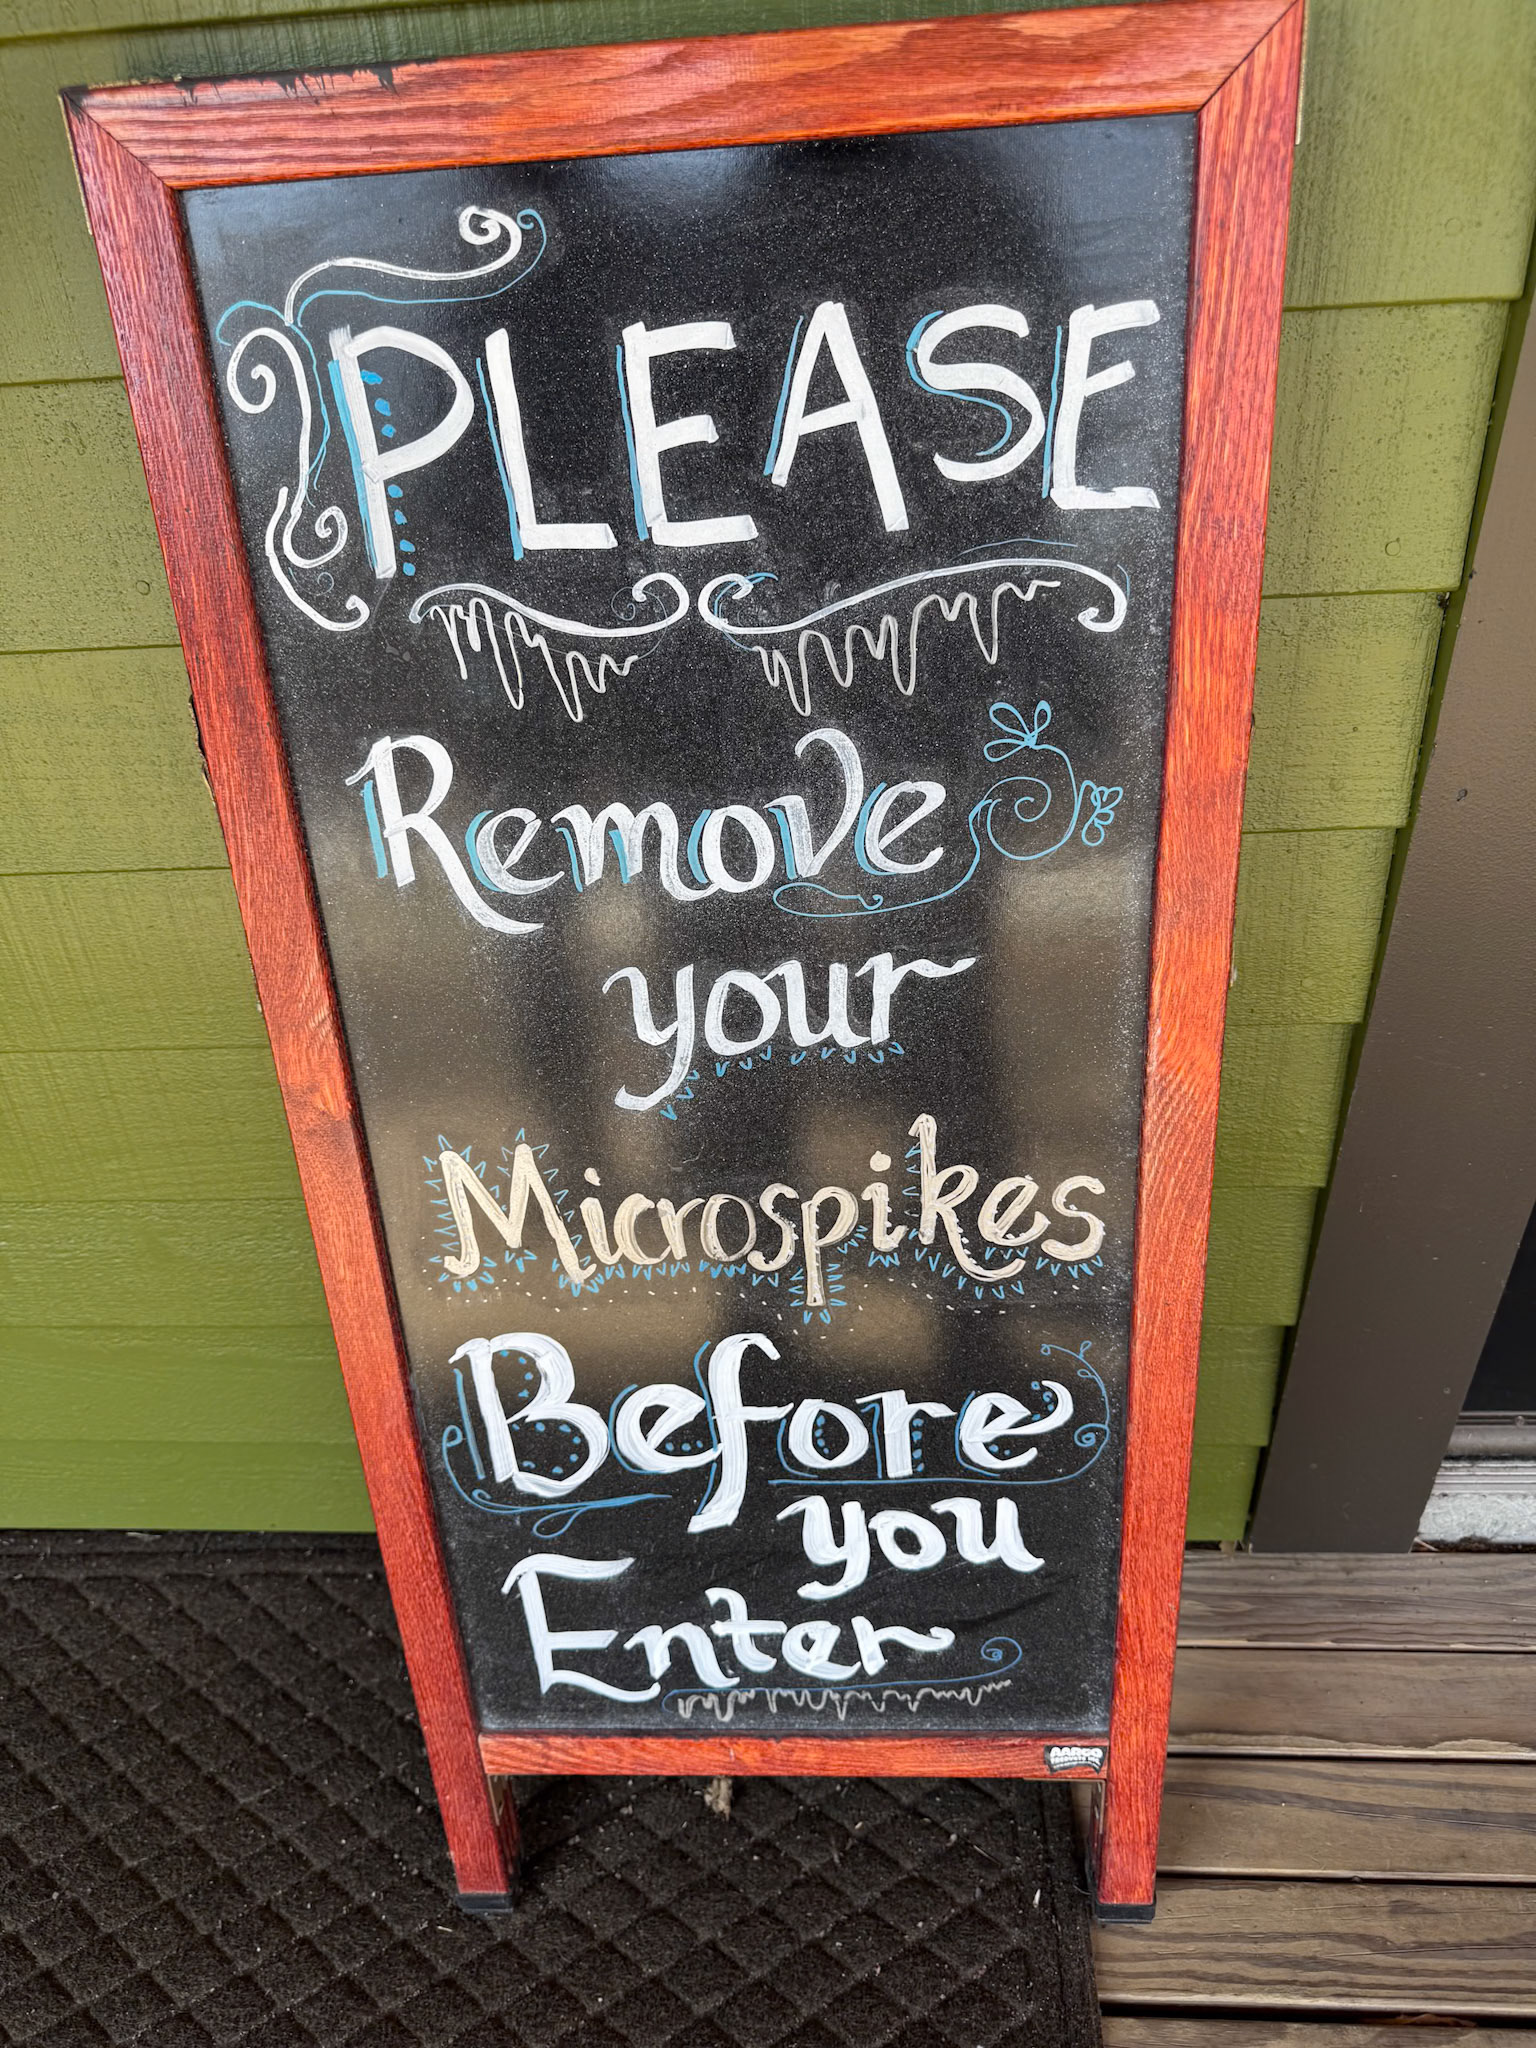 PLEASE
Remove
your
Microspikes
Before
you
Enter
AARCO
PRODUCTS INC.